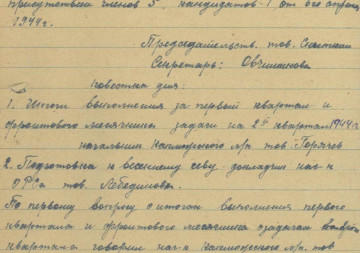 присутствии членов 5 кандидатов 1 от 6го апреля
1944г.
Председательств. тов.
Секретарь: Овчинникова
Повестка дня:
1. Итоги выполнения за первый квартал и
фронтового месячника задачи на 2й квартал 1944г.
начальник тов. Горячев
2. Подготовка к весеннему севу докладчик нач-к
ОРСа тов. Лебедимова.
По первому вопросу о итогах выполнения первого
квартала и фронтового месячника и задачах второго
квартала говорил нач-к тов